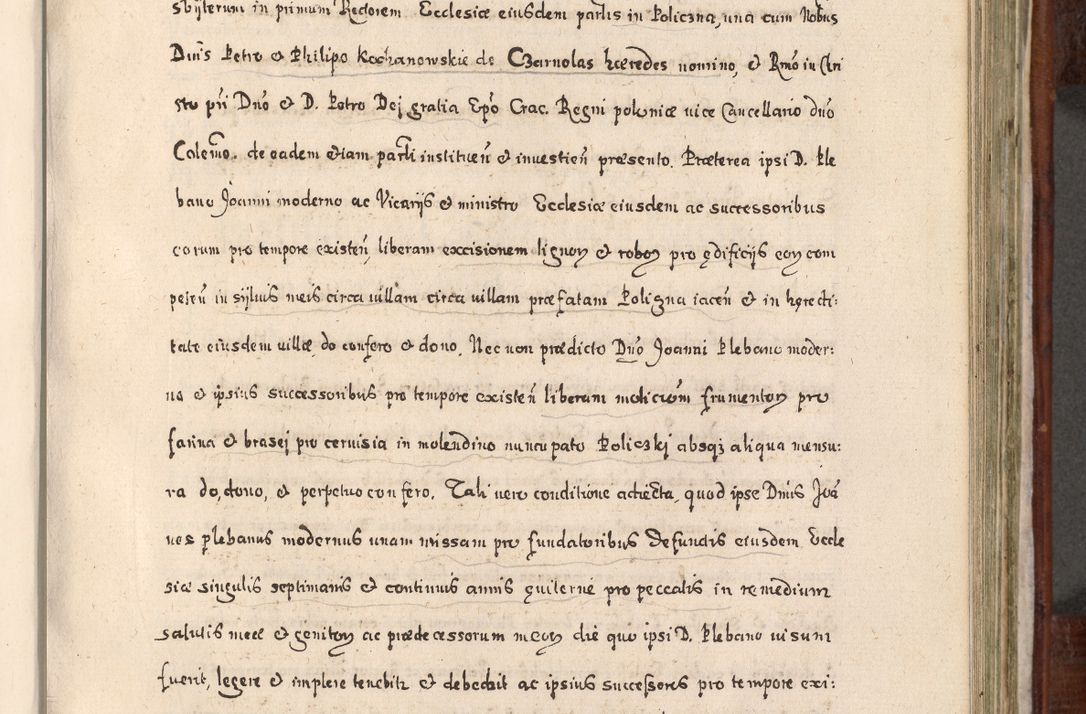 sbÿterum in primum Rectorem Ecclesiæ eiusdem partis in Policzna, una cum Nobus
Dnis Petro & Philipo Kochanowskie de Czarnolas hæredes nomino, & Rmo in Chri
sto pri Dno & D. Petro Dei gratia Epo Crac. Regni poloniæ vice Cancellario dno
Colemo. de eadem etiam parti instituen̄ & investien̄ præsento. Præterea ipsi D. Ple
bano Joanni moderno ac Vicarijs & ministro Ecclesiæ eiusdem ac successoribus
eorum pro tempore existen̄ liberam excisionem lignoꝝ & roboꝝ pro ędificijs eoꝝ com
peten̄ in sÿluis meis circa uillam circa uillam præfatam Poligna iacen̄ & in hęredi:
tate eiusdem uillæ, do confero & dono, Nec non prædicto Dno Joanni Plebano moder:
no & ipsius successoribus pro tempore existen̄ liberam molicionem frumentoꝝ pro
farina & brasej pro ceruisia in molendino nuncupato Policzkj absqꝫ aliqua mensu:
ra do, dono, & perpetuo confero. Tali uero conditione adiecta, quod ipse Dnis Joā
nes plebanus modernus unam missam pro fundatoribus defunctis eiusdem Eccle
siæ singulis septimanis & continuis annis quiterne pro peccatis in remedium
salutis meæ & genitoꝝ ac prædecessorum meoꝝ die quo ipsi D. Plebano uisum
fuerit, legere & implere tenebitr & debebit ac ipsius successores pro tempore exi: